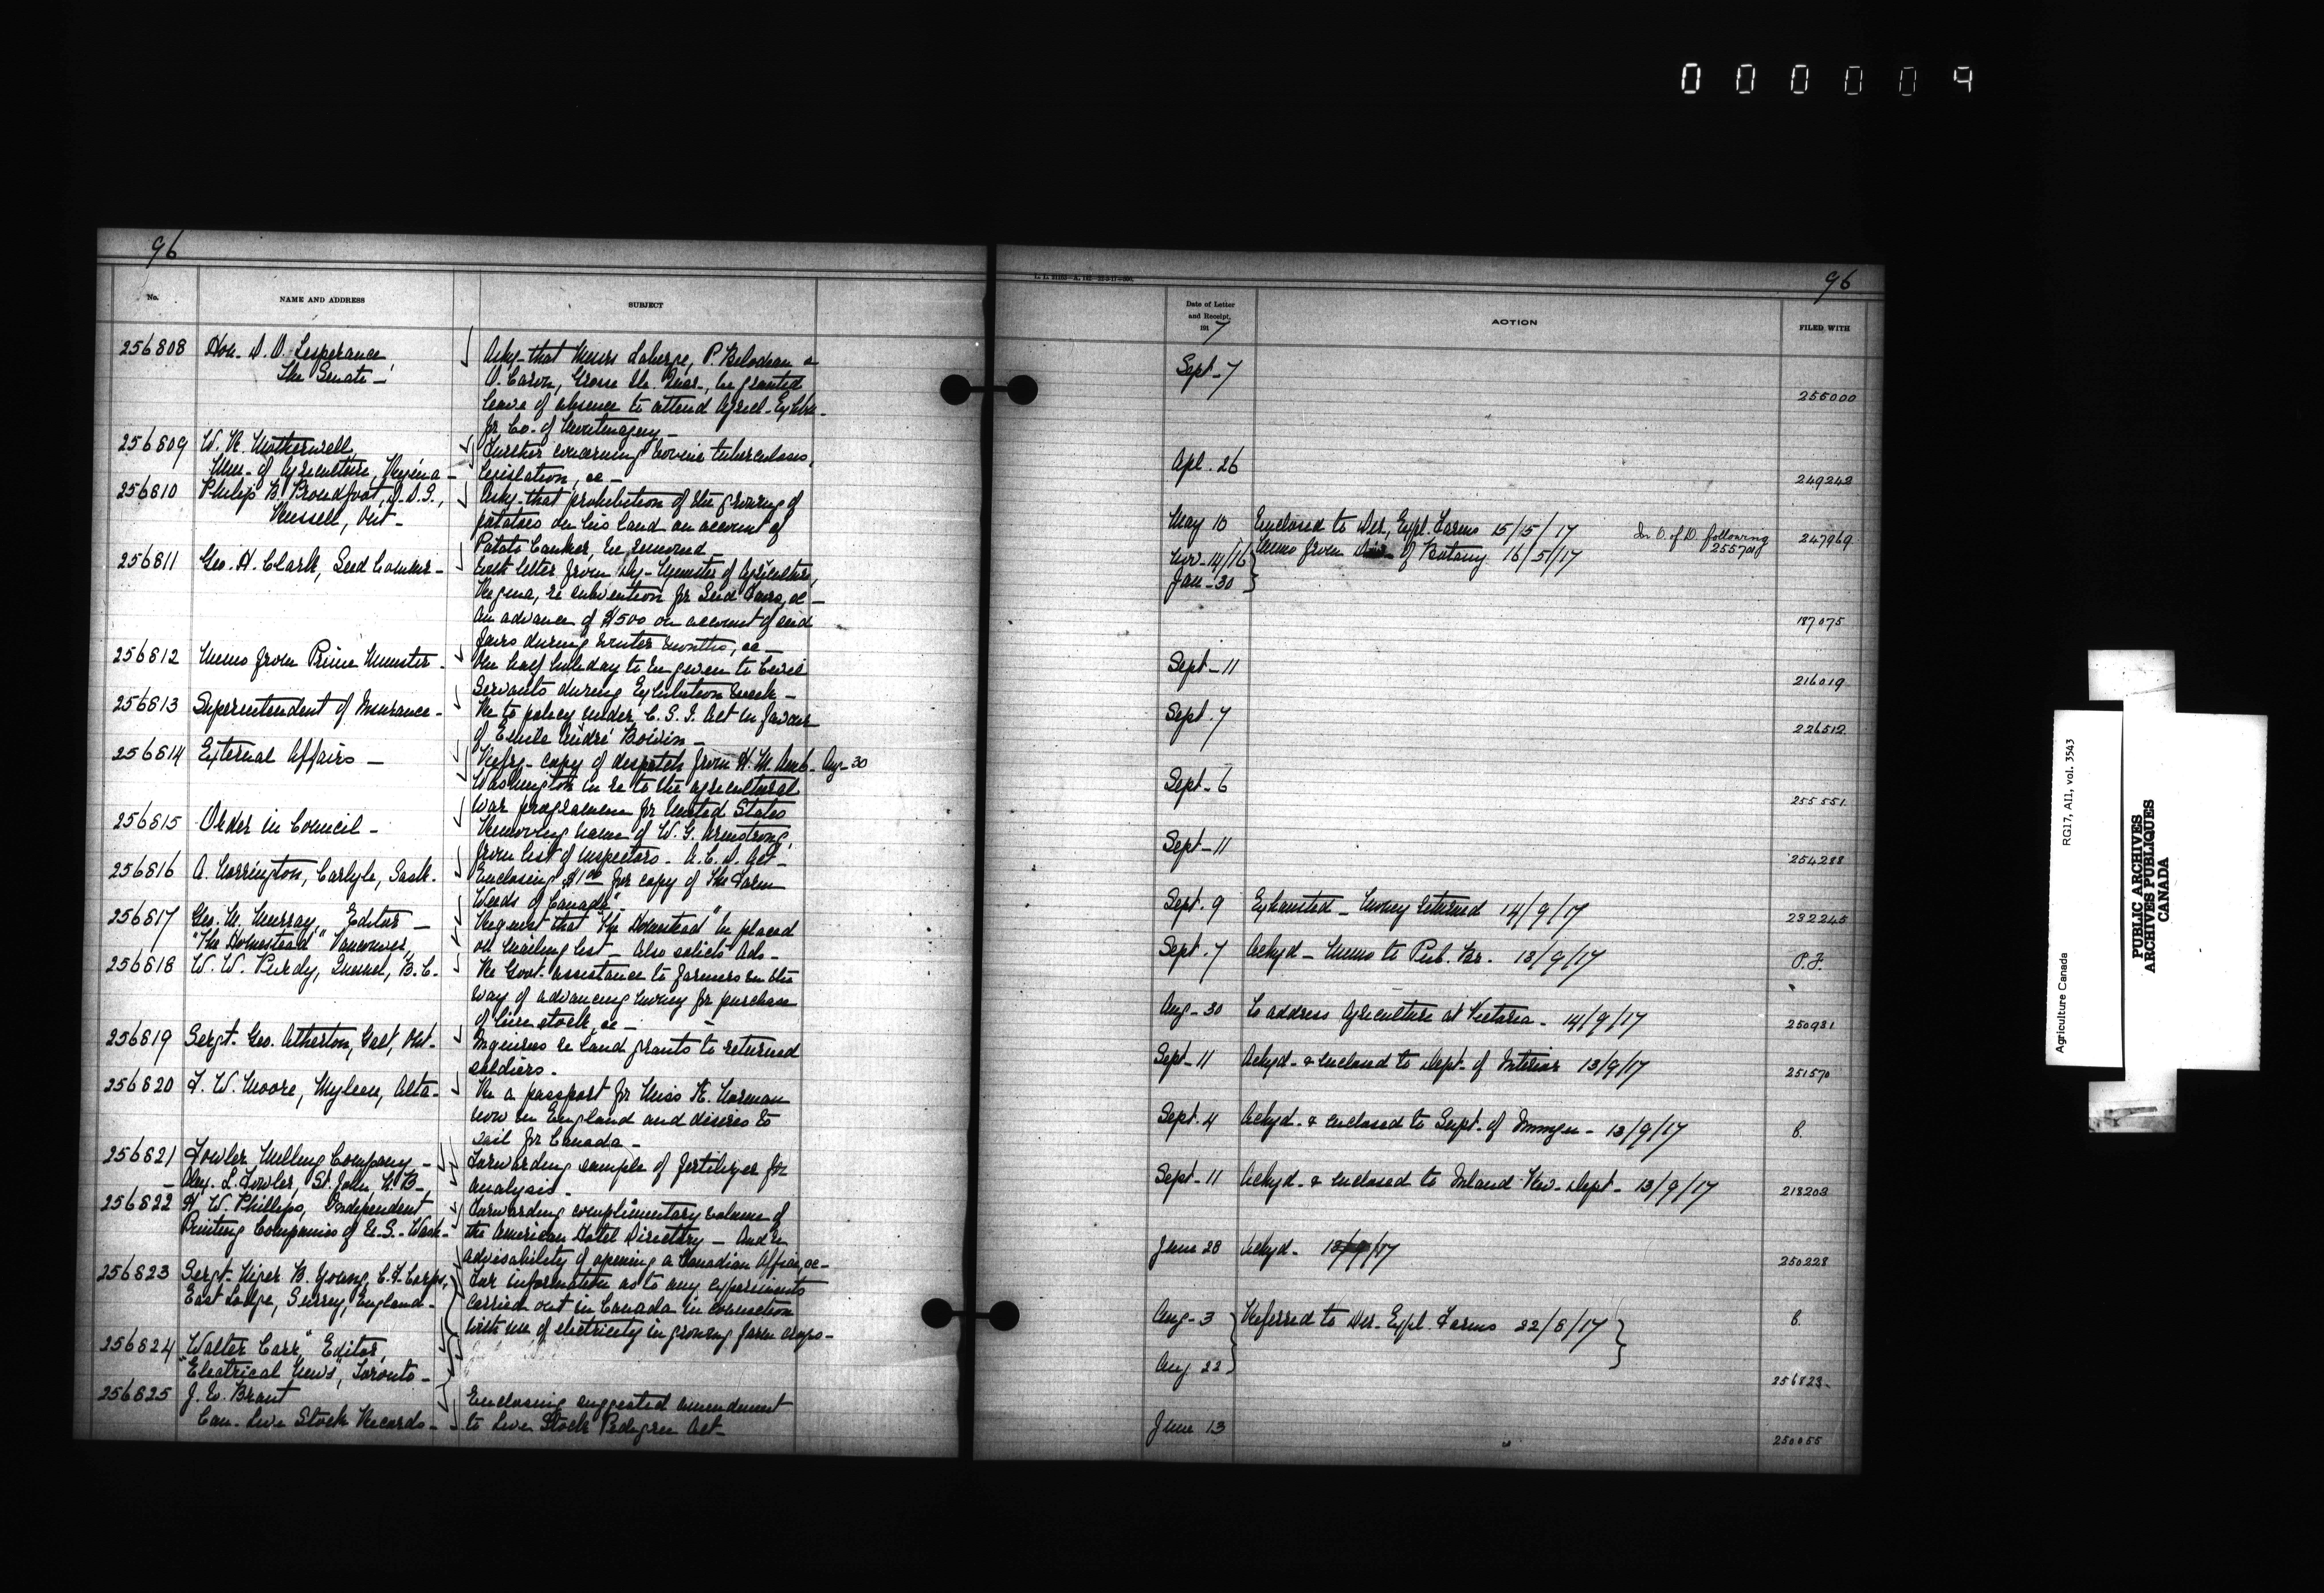 000009
96
No.
NAME AND ADDRESS
SUBJECT
256808 Hon. D. O. Lesperance
The Senate -
Askg. that Messrs Laberge, P. Belodeau &
O. Caron, Grosse Ile. Quar., be granted
leave of absence to attend Agricl. Exhbn.
for Co. of Montmagny -
256809 W. R. Motherwell,
Min. of Agriculture, Regina -
Further concerning bovine tuberculosis,
legislation, &c -
256810 Philip B. Proudfoot, D.D.S.,
Russell, Ont -
Askg. that prohibition of the growing of
potatoes on his land on account of
Potato Canker, be removed
256811 Geo. H. Clark, Seed Commr -
With letter from Dy - Minister of Agriculture,
Regina, re subvention for Seed Fairs, &c -
An advance of $500 on account of seed
fairs during winter months, &c -
256812 Memo from Prime Minister -
On half holiday to be given to Civil
Servants during Exhibition week -
256813 Superintendent of Insurance -
Re to policy under C. S. I. Act in favour
of Emile André Boivin -
256814 External Affairs -
Refrg - copy of despatch from H. M. Amb - Aug - 30
Washington in re to the agricultural
war programme for United States
256815 Order in Council -
Removing name of W. G. Armstrong,
from list of inspectors - A. C. D. Act -
256816 A. Norrington, Carlyle, Sask.
Enclosing $1.00 for copy of "The Farm
Weeds of Canada" -
256817 Geo. M. Murray, Editor -
"The Homestead" Vancouver,
Request that "The Homestead" be placed
on mailing list - Also solicits Ads -
256818 W. W. Purdy, Quesnel, B.C.
Re Govt. assistance to farmers in the
way of advancing money for purchase
of live stock, &c -
256819 Sergt. Geo. Atherton, Galt, Ont -
Inquiries re land grants to returned
soldiers -
256820 F. W. Moore, Myleen, Alta -
Re a passport for Miss K. Norman
now in England and desires to
sail for Canada -
256821 Fowler Milling Company -
- Alex. L. Fowler, St. John N. B -
Forwarding sample of fertilizer for
analysis -
256822 H. W. Phillips, Independent
Printing Companies of U.S. - Wash -
Forwarding complimentary volume of
the American Hotel Directory - And re
advisability of opening a Canadian Office, &c -
256823 Sergt. Piper B. Young, C.F. Corps,
East Lodge, Surrey, England -
For information as to any experiments
carried out in Canada in connection
with use of electricity in growing farm crops -
256824 Walter Carr, Editor,
"Electrical News", Toronto -
256825 J. W. Brant
Can. Live Stock Records -
Enclosing suggested amendment
to Live Stock Pedigree Act -
96
Date of Letter
and Receipt,
1917
ACTION
FILED WITH
Sept - 7 255000
Apl. 26 249242
May 10 Enclosed to Dir. Expl. Farms 15/5/17 In O. of D. following 247969
Memo from of Botany 16/5/17 255701
Nov - 14/16
Jan - 30 187075
Sept - 11 216019
Sept. 7 226512
Sept - 6 255551
Sept - 11 254288
Sept. 9 Exhausted - Money returned 14/9/17 232245
Sept. 7 Ackgd - Memo to Pub. Br. 13/9/17 P.F.
Aug - 30 To address Agriculture at Victoria - 14/9/17 250931
Sept - 11 Ackgd - & enclosed to Dept - of Interior 13/9/17 251570
Sept. 4 Ackgd. & enclosed to Supt. of Immgn - 13/9/17
Sept - 11 Ackgd. & enclosed to Inland Rev. Dept - 13/9/17 218203
June 28 Ackgd. 250228
Aug - 3 Referred to Dir. Expl. Farms 22/8/17
Aug 22 256823
June 13 250055
Agriculture Canada RG17, A11, vol. 3543
PUBLIC ARCHIVES
ARCHIVES PUBLIQUES
CANADA